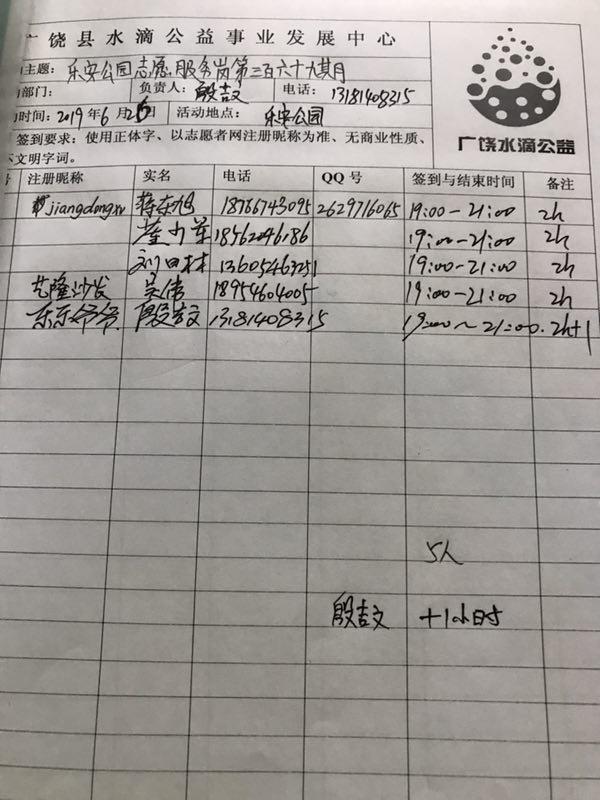 广饶县水滴公益事业发展中心
主题: 乐安公园志愿服务岗第三百六十九期
部门: 负责人: 殷吉文 电话: 13181408315
时间: 2019年6月26 活动地点: 乐安公园
签到要求: 使用正体字、以志愿者网注册昵称为准、无商业性质、
不文明字词。
广饶水滴公益
注册昵称 实名 电话 QQ号 签到与结束时间 备注
jiangdongxu 蒋东旭 18766743095 2629716065 19:00-21:00 2h
18562046186 19:00-21:00 2h
刘田林 13605463251 19:00-21:00 2h
艺隆沙发 吴伟 18954604005 19:00-21:00 2h
东东爷爷 殷吉文 13181408315 19:00~21:00. 2h+1
5人
殷吉文 +1小时